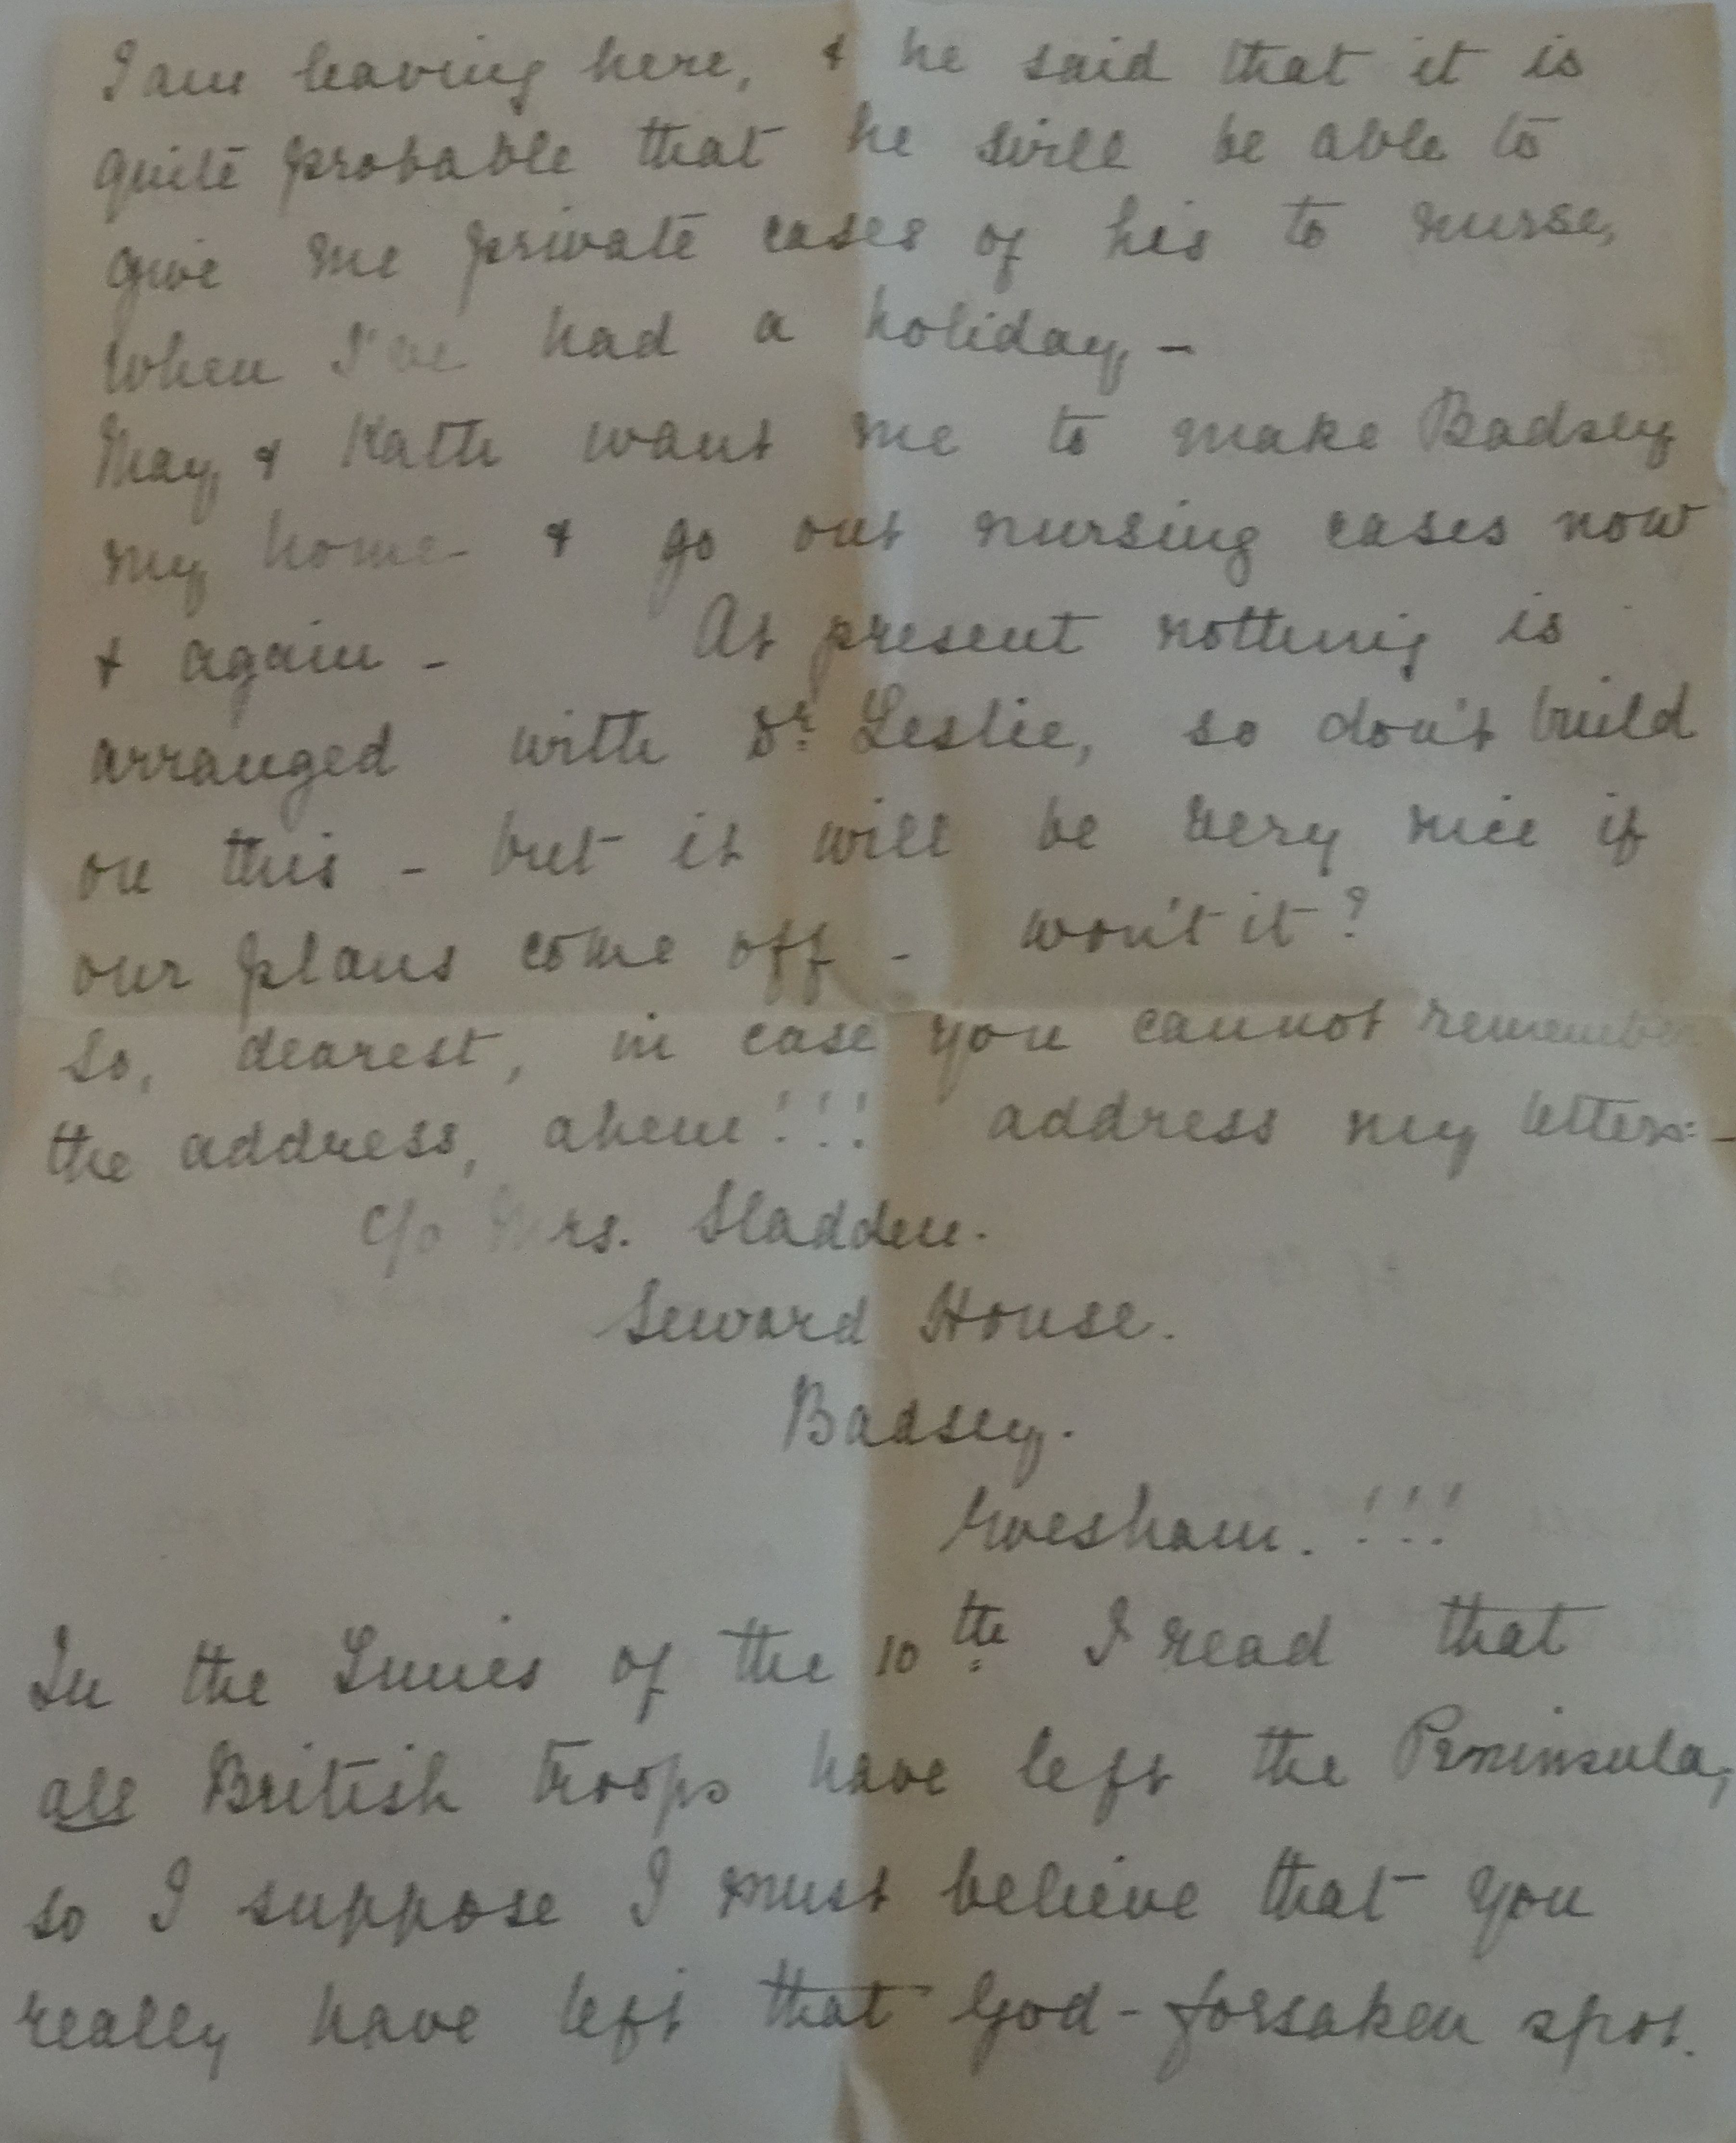 I am leaving here, & he said that it is
quite probable that he will be able to
give me private cases of his to nurse,
when I've had a holiday, -
May & Kath want me to make Badsey
my home - & go out nursing cases now
& again - At present nothing is
arranged with Dr Leslie, so don't build
on this - but it will be very nice if
our plans come off - won't it?
So, dearest, in case you cannot remember
the address, ahem!!! address my letters:-
c/o Mrs. Sladden.
Seward House.
Badsey.
Evesham.!!!
In the Times of the 10th I read that
all British troops have left the Peninsula,
so I suppose I must believe that you
really have left that God-forsaken spot.